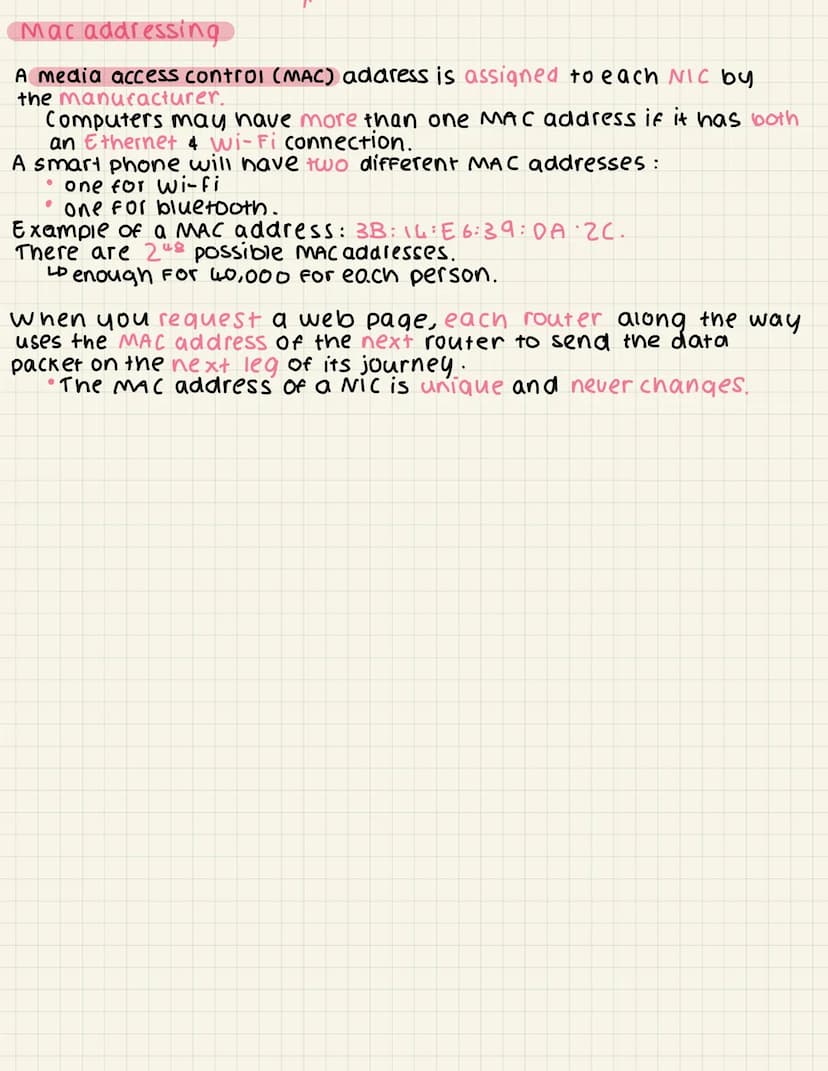 Mac addressing
A media access control (MAC) address is assigned to each NIC by
the manufacturer.
Computers may have more than one MAC address if it has both
an Ethernet & Wi-Fi connection.
A smart phone will have two different MAC addresses:
• one for Wi-Fi
• one for bluetooth.
Example of a MAC address: 3B:14:E6:39:0A:2C.
There are 2⁴⁸ possible MAC addresses.
↳ enough for 40,000 for each person.
When you request a web page, each router along the way
uses the MAC address of the next router to send the data
packet on the next leg of its journey.
• The MAC address of a NIC is unique and never changes.